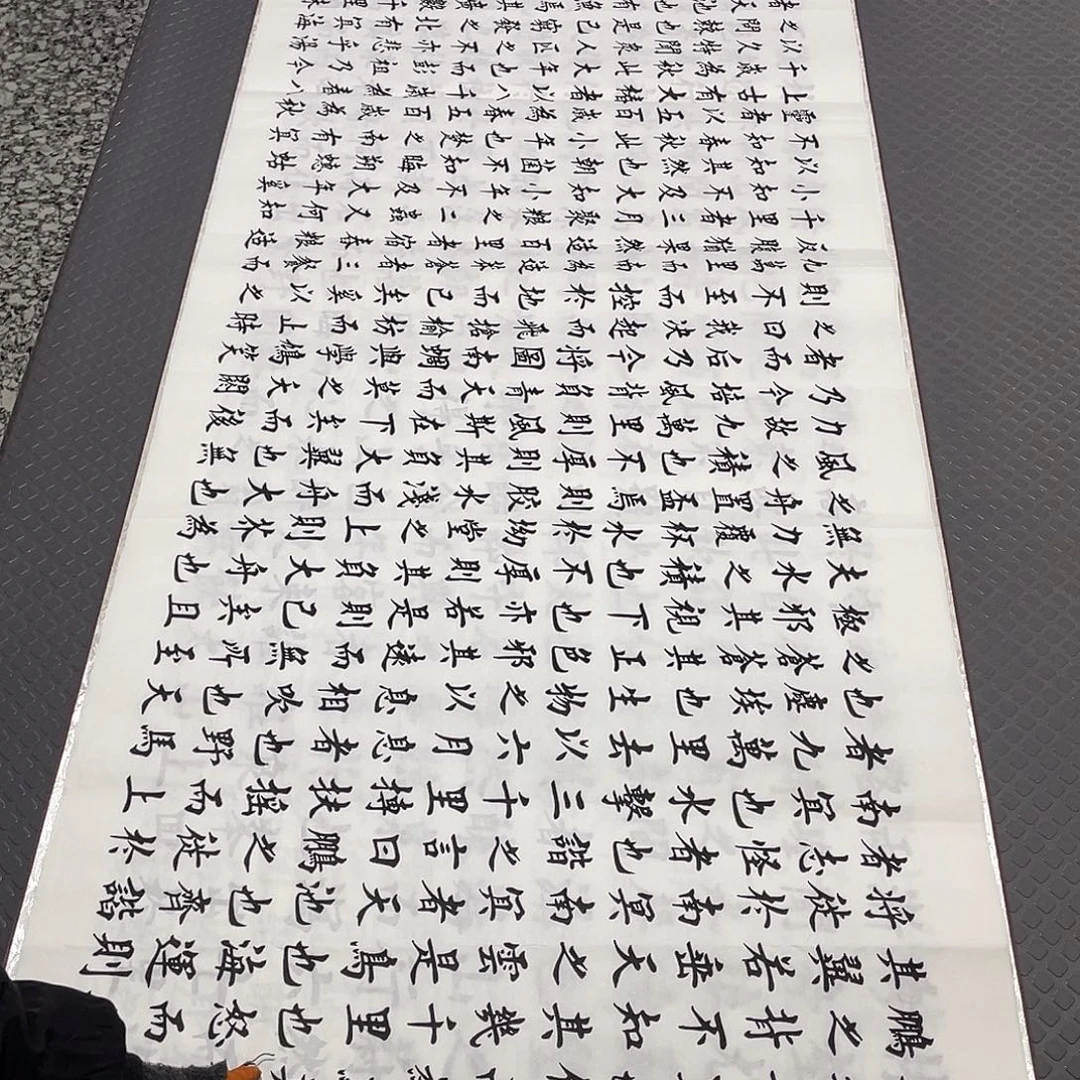 鵬之背不知其幾千里也怒而
其翼若垂天之雲是鳥也海運則
將徙於南冥南冥者天池也齊諧
者志怪者也諧之言曰鵬之徙於
南冥也水擊三千里搏扶搖而上
者九萬里去以六月息者也野馬
也塵埃也生物之以息相吹也天
之蒼蒼其正色邪其遠而無所至
極邪其視下也亦若是則已矣且
夫水之積也不厚則其負大舟也
無力覆杯水於坳堂之上則芥為
之舟置盃焉則膠水淺而舟大也
風之積也不厚則其負大翼也無
力故九萬里則風斯在下矣而後
乃今培風背負青天而莫之夭閼
者而后乃今將圖南蜩與學鳩笑
之曰我決起而飛槍榆枋而止時
則不至而控於地而已矣奚以之
九萬里而南為適莽蒼者三餐而
反腹猶果然適百里者宿舂糧適
千里者三月聚糧之二蟲又何知
小知不及大知小年不及大年奚
以知其然也朝菌不知晦朔蟪蛄
不知春秋此小年也楚之南有冥
靈者以五百歲為春五百歲為秋
上古有大椿者以八千歲為春八
千歲為秋此大年也而彭祖乃今
以久特聞眾人匹之不亦悲乎湯
之問棘也是已窮髮之北有冥海
者天池也有魚焉其廣數千里未